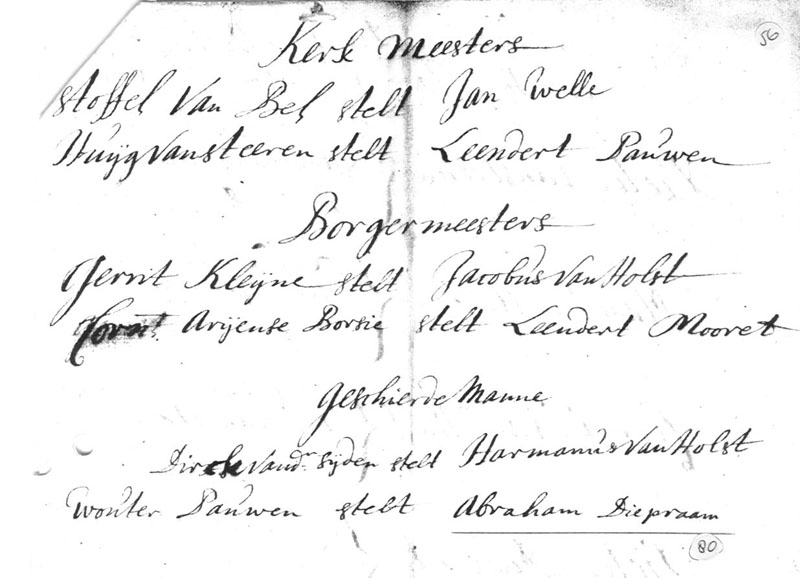 56
Kerk Meesters
Stoffel Van Bel stelt Jan Welle
Huijg Vansteeren stelt Leendert Pauwen
Borgermeesters
Gerrit Kleijne stelt Jacobus Van Holst
Cornt. Arijense Borsie stelt Leendert Mooret
Geschierde Manne
Dirck Vandr. Sijden stelt Harmanus Van Holst
Wouter Pauwen stelt Abraham Diepraam
80